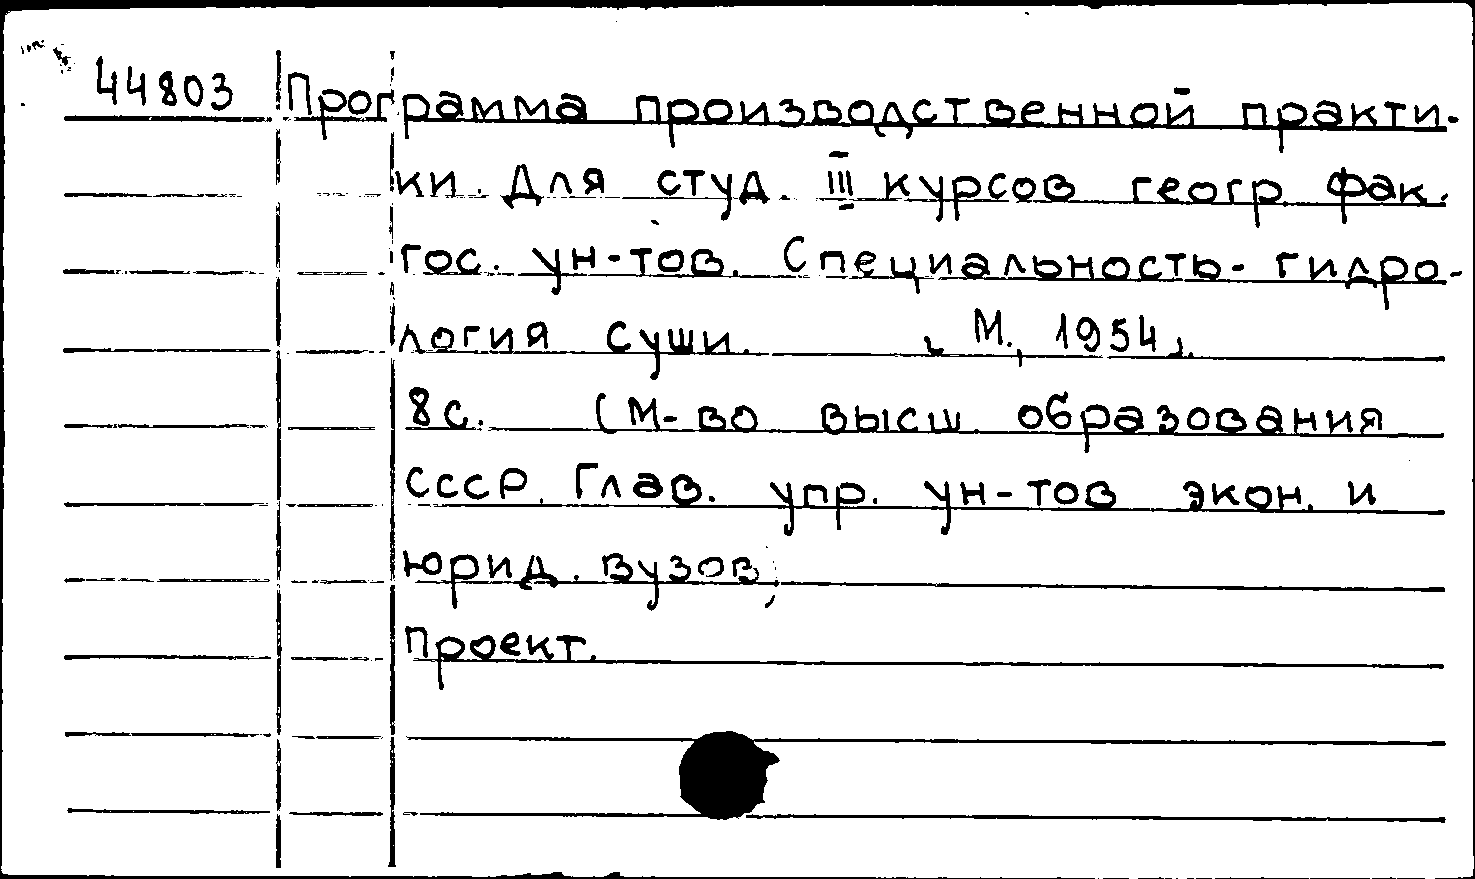 44803 Программа производственной практи-
ки. Для студ. III курсов геогр. фак.
гос. ун-тов. Специальность- гидро-
логия суши. [М., 1954].
8с. (М-во высш. образования
СССР. Глав. упр. ун-тов экон. и
юрид. вузов)
Проект.